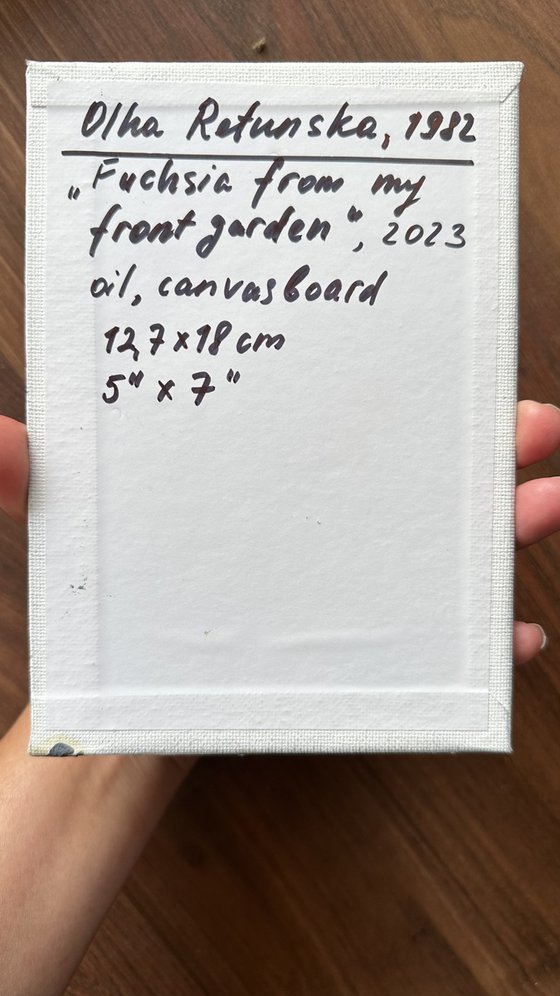 Olha Retunska, 1982
„Fuchsia from my
front garden", 2023
oil, canvasboard
12,7 x 18 cm
5" x 7"